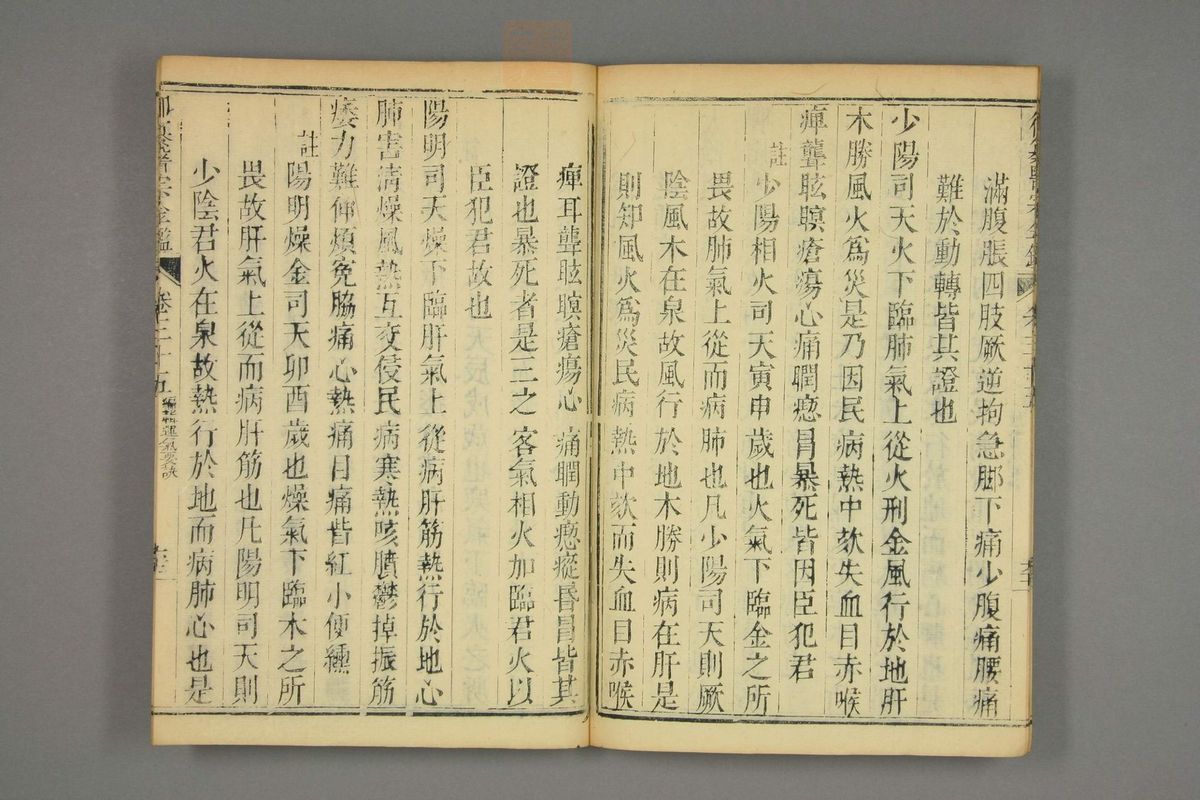 滿腹脹四肢厥逆拘急脚下痛少腹痛腰痛
難於動轉皆其證也
少陽司天火下臨肺氣上從火刑金風行於地肝
木勝風火爲災是乃因民病熱中欬失血目赤喉
痺聾眩瞑瘡瘍心痛瞤瘛冒暴死皆因臣犯君
註少陽相火司天寅申歲也火氣下臨金之所
畏故肺氣上從而病肺也凡少陽司天則厥
陰風木在泉故風行於地木勝則病在肝是
則知風火爲災民病熱中欬而失血目赤喉
痺耳聾眩瞑瘡瘍心痛瞤動瘛瘲昏冒皆其
證也暴死者是三之客氣相火加臨君火以
臣犯君故也
陽明司天燥下臨肝氣上從病肝筋熱行於地心
肺害清燥風熱互交侵民病寒熱咳膹鬱掉振筋
痿力難伸煩寃脇痛心熱痛目痛眥紅小便纁
註陽明燥金司天卯酉歲也燥氣下臨木之所
畏故肝氣上從而病肝筋也凡陽明司天則
少陰君火在泉故熱行於地而病肺心也是
卷三十五 編輯運氣要訣